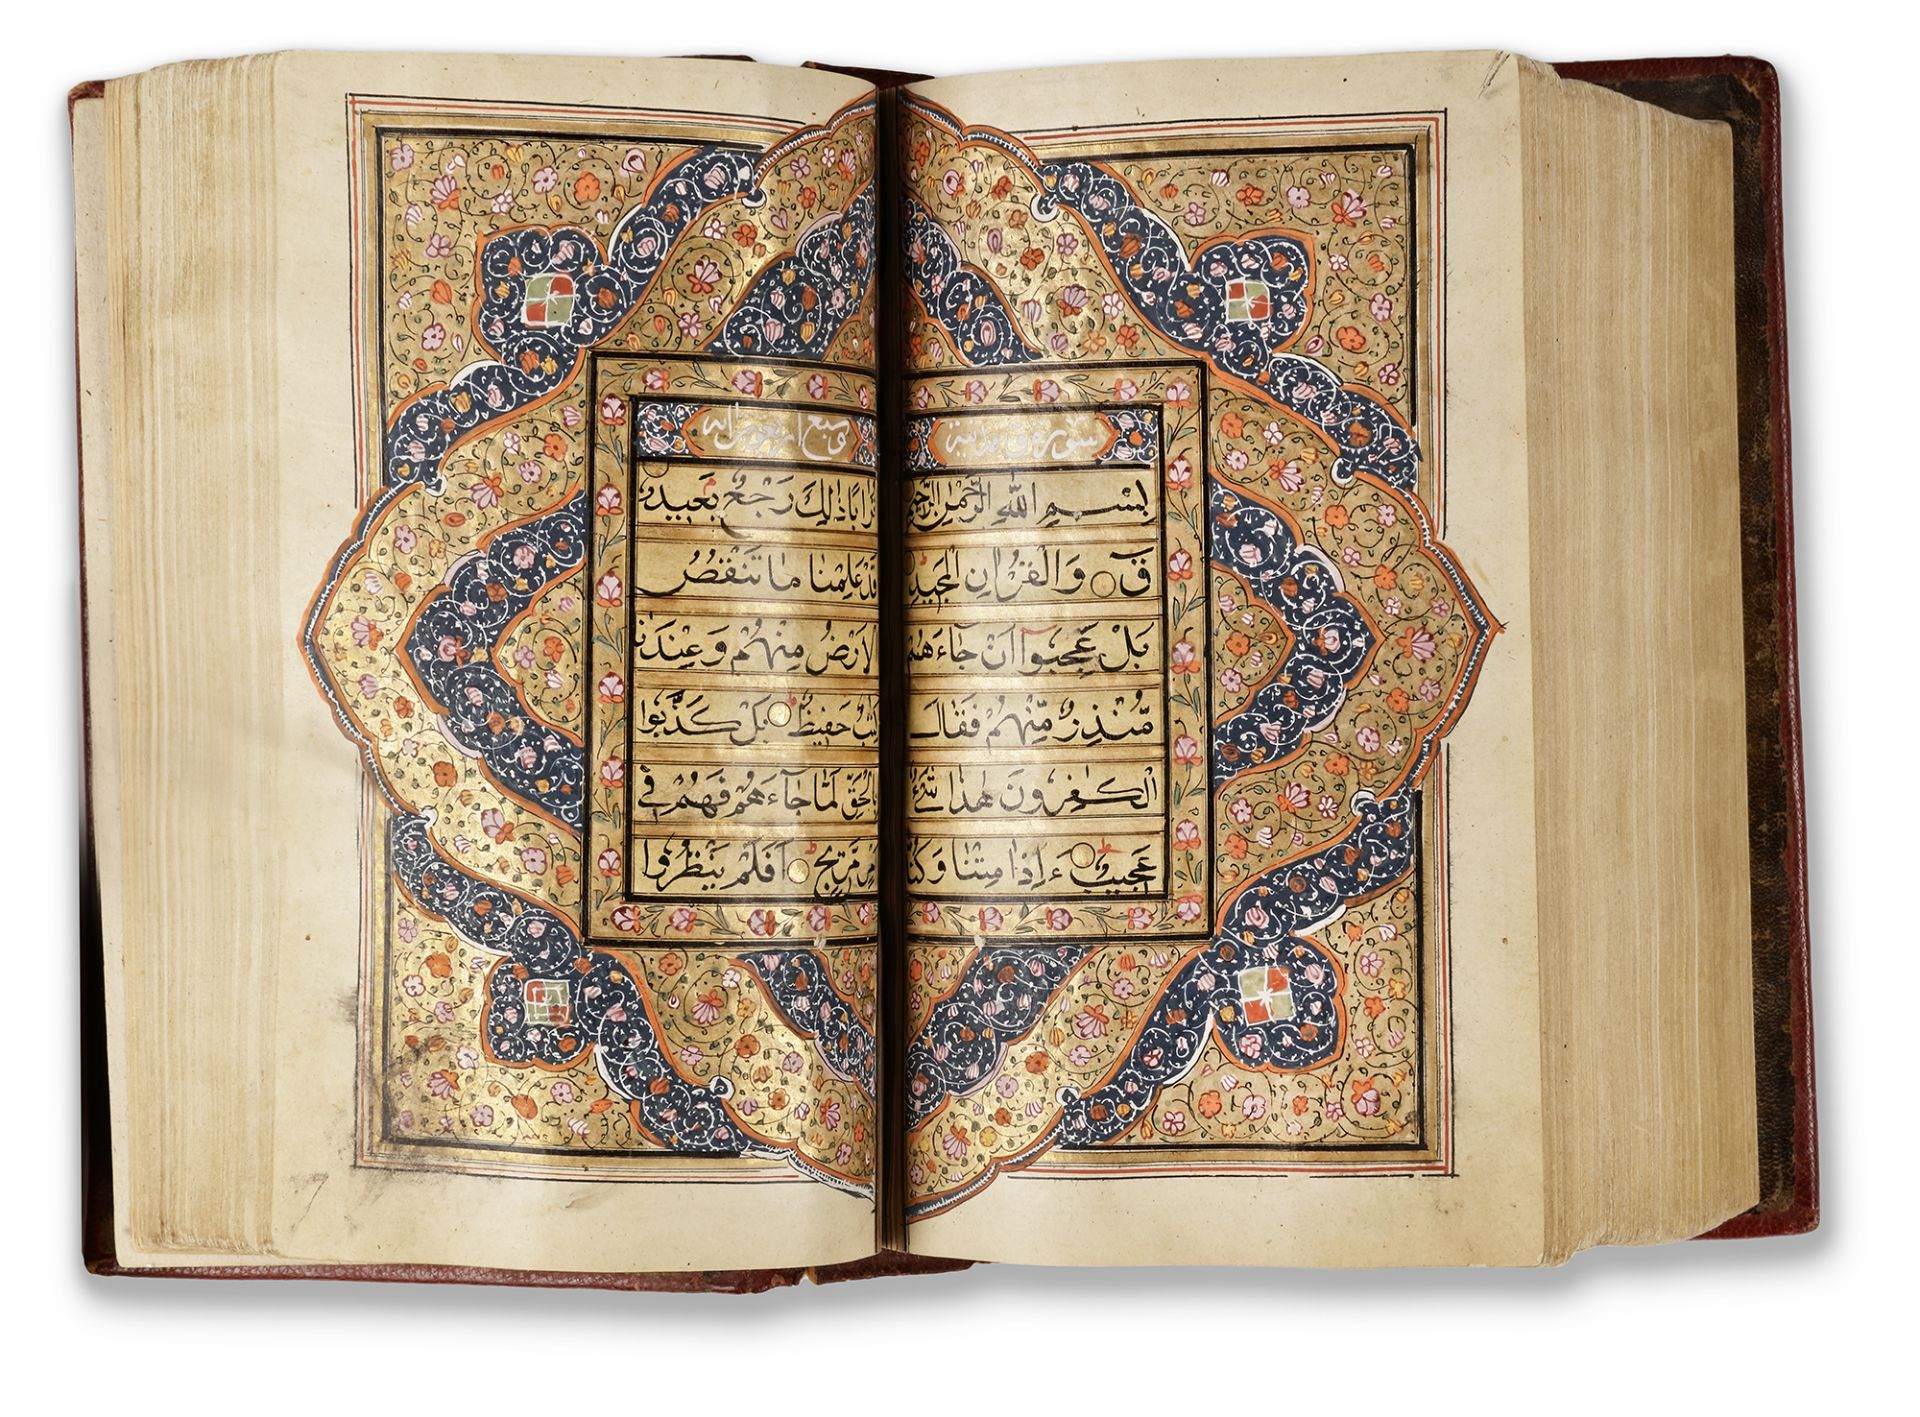 سورة ق مدنية
بِسْمِ اللهِ الرَّحْمٰنِ الرَّحِيمِ
قٓ وَالْقُرْاٰنِ الْمَجِيدِ
بَلْ عَجِبُوٓا اَنْ جَآءَهُمْ
مُّنْذِرٌ مِّنْهُمْ فَقَالَ
الْكٰفِرُونَ هٰذَا شَيْءٌ
عَجِيبٌ ءَاِذَا مِتْنَا وَكُنَّا
اربعون ايه
تُرَابًا ذٰلِكَ رَجْعٌ بَعِيدٌ
قَدْ عَلِمْنَا مَا تَنْقُصُ
الْاَرْضُ مِنْهُمْ وَعِنْدَنَا
كِتٰبٌ حَفِيظٌ بَلْ كَذَّبُوا
بِالْحَقِّ لَمَّا جَآءَهُمْ فَهُمْ فِي
اَمْرٍ مَّرِيجٍ اَفَلَمْ يَنْظُرُوا